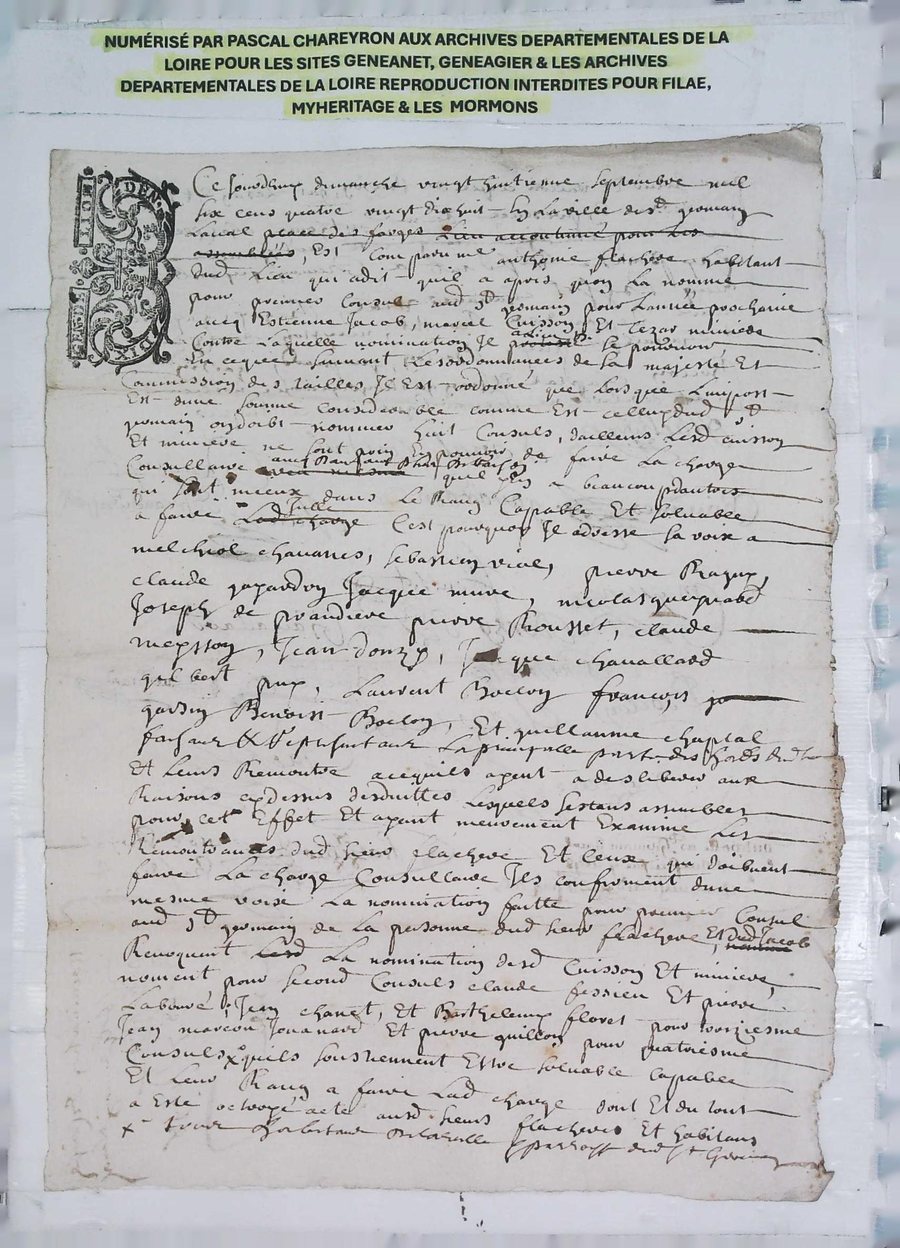 NUMÉRISÉ PAR PASCAL CHAREYRON AUX ARCHIVES DEPARTEMENTALES DE LA
LOIRE POUR LES SITES GENEANET, GENEAGIER & LES ARCHIVES
DEPARTEMENTALES DE LA LOIRE REPRODUCTION INTERDITES POUR FILAE,
MYHERITAGE & LES MORMONS
Ce jourdhuy dimanche vingt huitienne septembre mil
six cens quatre vingt dix huit En La ville de st germain
Laval place des farges Lieu accoutumé pour Les
assemblées, Est Comparu me anthome flachere habitant
dud Lieu qui a dit quil a apris quon La nomme
pour premier Consul aud st germain pour Lannee prochaine
avecq Estienne Jacob, marcel Cuisson Et Cezar miniere
Contre Laquelle nomination Il se pourvoir
En ce que suivant Les ordonnances de sa majesté Et
Commission des tailles Il Est ordonné que Lorsque Limpost
Est dune somme considerable comme Est celluy dud st
germain on doibt nommer huit Consuls, dailleurs Lesd cuisson
Et miniere ne sont poin En pouvoir de faire La charge
Consullaire quil y En a beaucoup dautres
qui sont mieux dans Le Rang Capable Et soluable
a faire Lad charge Cest pourquoy Il adresse sa voix a
melchiol chavanes, sebastien vial, pierre Ragux,
claude Jacque mure, nicolas
Joseph de prandiere pierre Rousset, claude
meysson, Jean donzy, Jacque chavallard
gilbert puy, Laurent Boclon françois
garsin Benoist Boclon, Et guillaume chaptal
faisant La principalle partie des
Et Leurs Remontre a ce quils ayent a deslibever aux
Raisons cy dessus desduittes Lesquels sestans assembles
pour cet Effet Et ayant meurement Examine Les
Remontrances dud sieur flachere Et Ceux qui doibuent
faire La charge Consullaire Ils confirment dune
mesme voix La nomination faitte pour premier Consul
aud st germain de La personne dud sieur flachere Et dud Jacob
Revoquent La nomination desd Cuisson Et miniere,
noment pour second Consuls claude fessieu Et pierre
Labouré, Jean chanet, Et Barthelemy floret pour troiziesme
Jean marcou Jouanard Et pierre quillon pour quatriesme
Consuls quels soustiennent Estre soluable capable
Et Leur Rang a faire Lad charge dont Et du tout
a Este octroyé acte aud sieurs flachere Et habitans